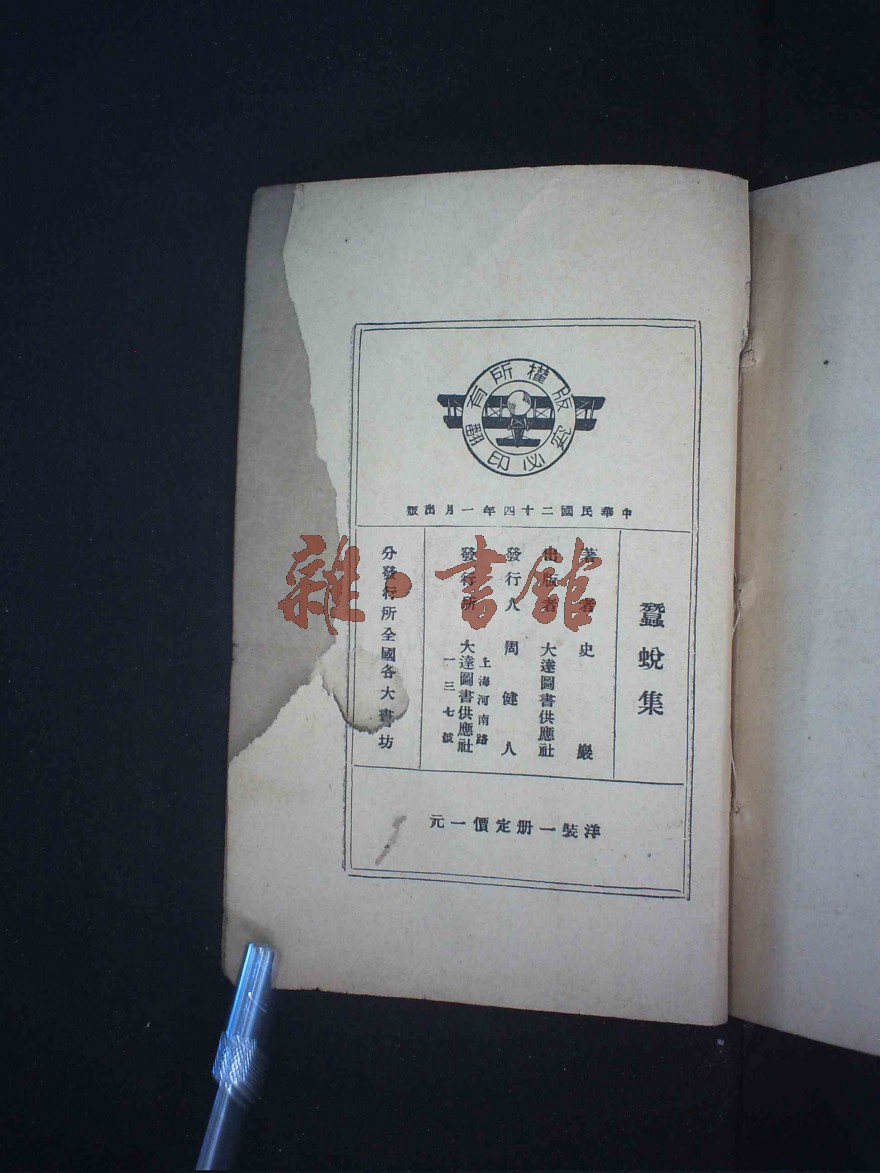 版權所有
翻印必究
中華民國二十四年一月出版
蠶蛻集
著者 史巖
出版者 大達圖書供應社
發行人 周健人
發行所 大達圖書供應社
上海河南路
一三七號
分發行所全國各大書坊
洋裝一册定價一元
雜·書館